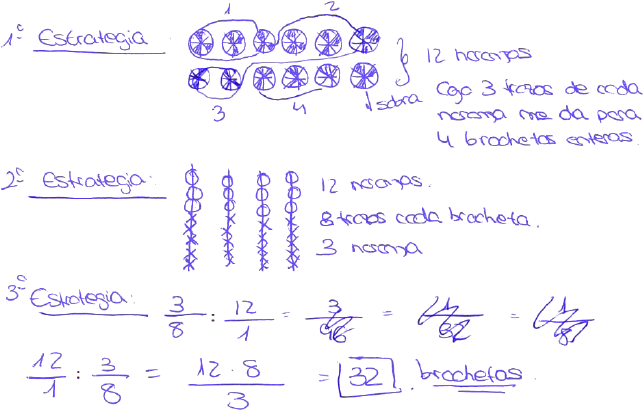 1ª Estrategia 1 2
12 naranjas
Cojo 3 trozos de cada
sobra
naranja me da para
3 4
4 brochetas enteras.
2ª Estrategia:
12 naranjas.
8 trozos cada brocheta.
3 naranja
3ª Estrategia: 3/8 : 12/1 = 3/96 = 1/32 =
12/1 : 3/8 = 12 · 8 / 3 = 32 brochetas.